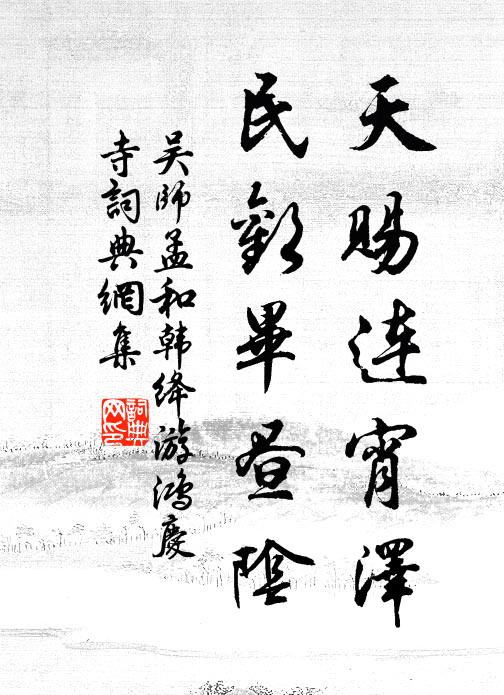 天賜連宵澤
民歡畢晝陰
吴師孟和韩绛游鴻慶
寺詞典網集
詞典网印